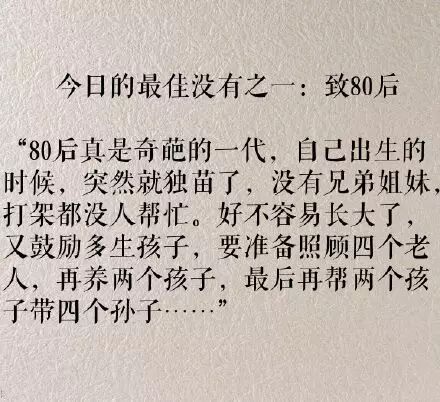 今日的最佳没有之一：致80后
“80后真是奇葩的一代，自己出生的
时候，突然就独苗了，没有兄弟姐妹，
打架都没人帮忙。好不容易长大了，
又鼓励多生孩子，要准备照顾四个老
人，再养两个孩子，最后再帮两个孩
子带四个孙子……”